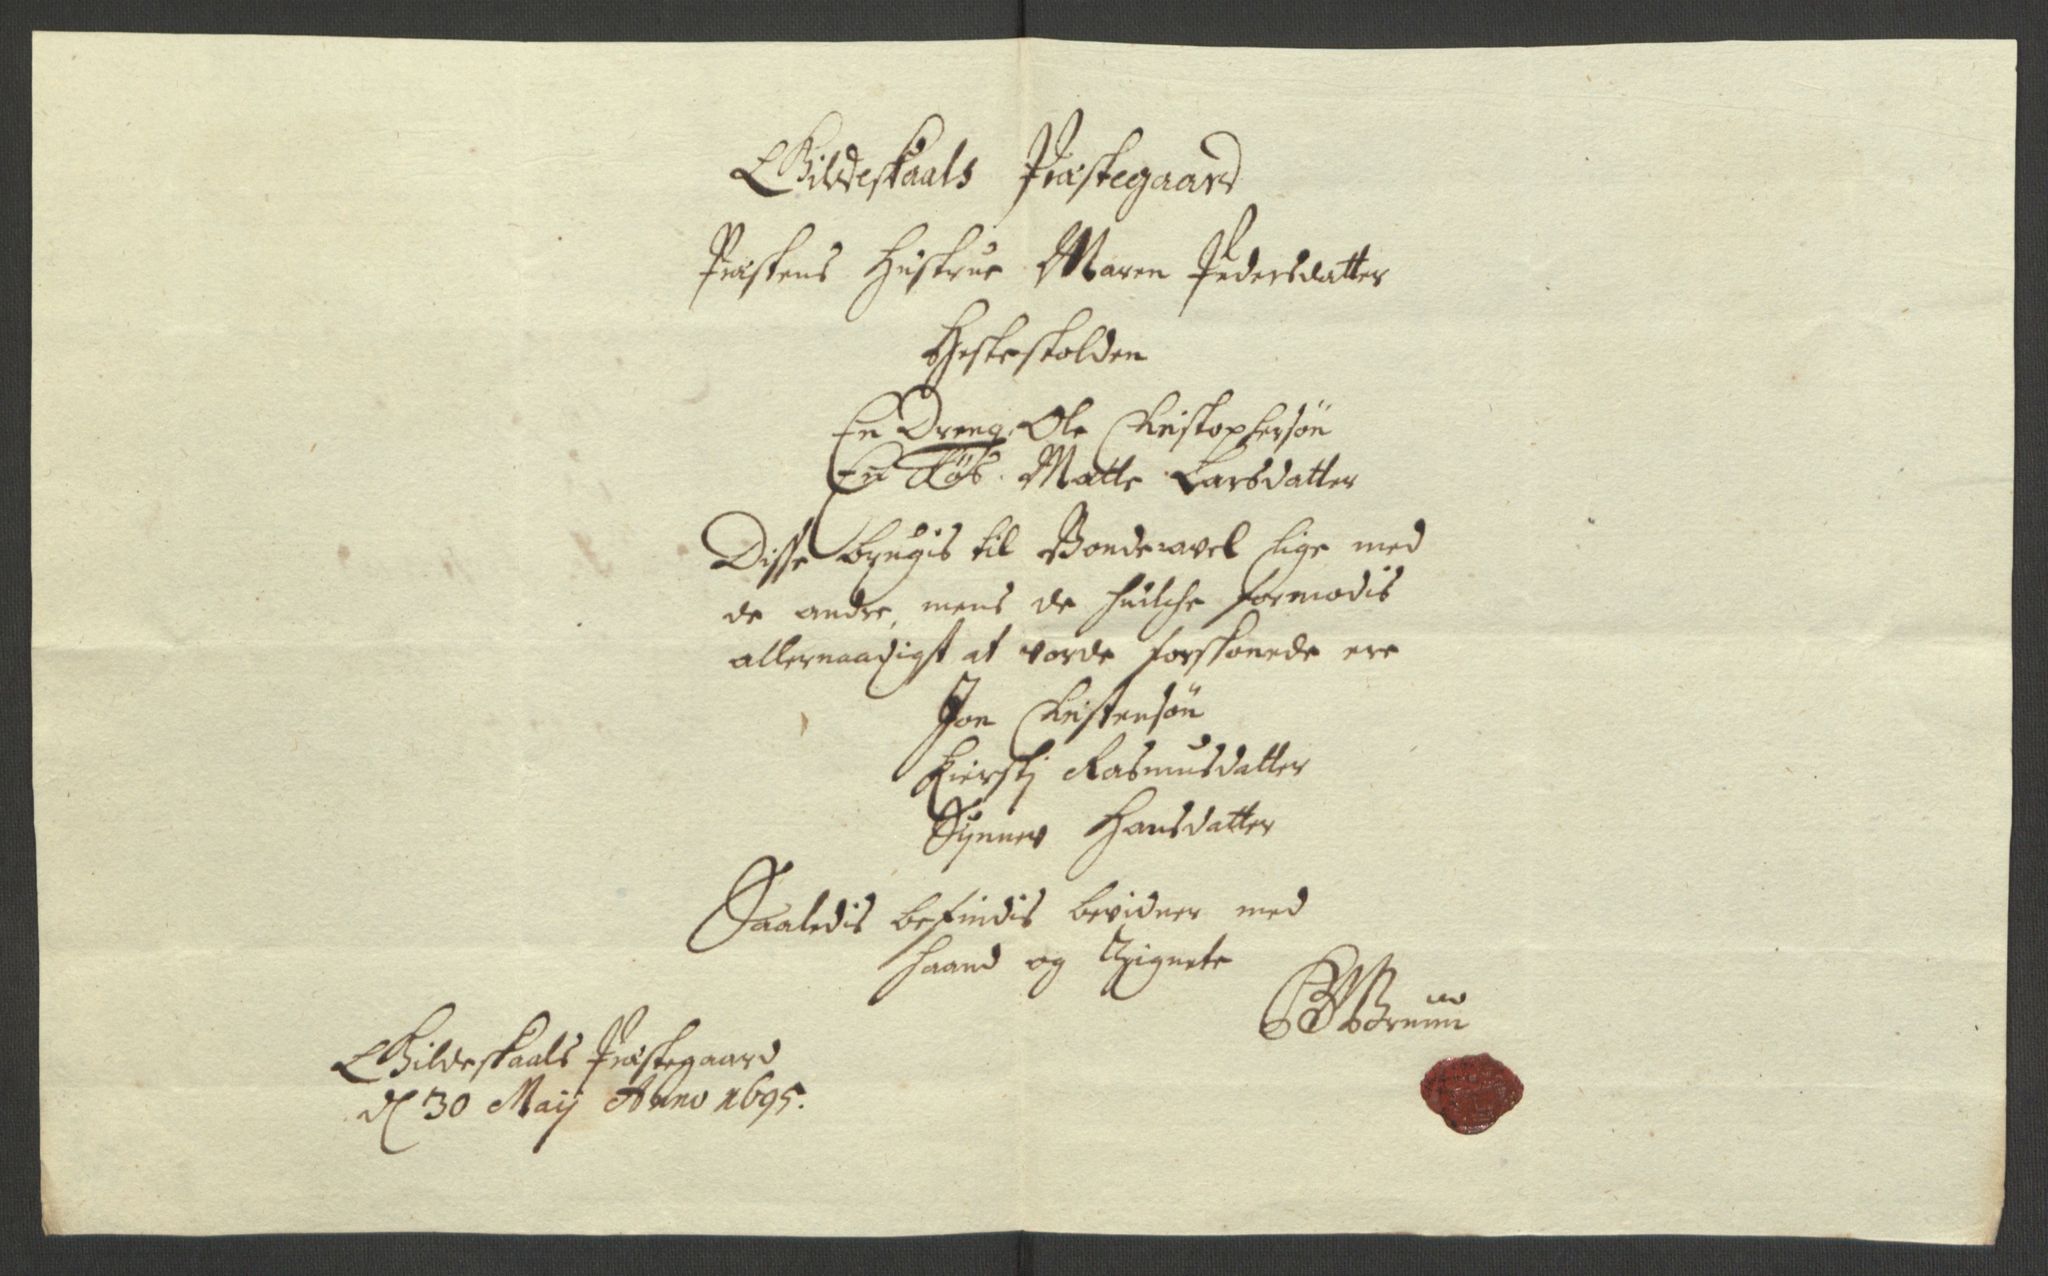 Gildeskaals Præstegaard
Præstens Hustrue Maren Pedersdatter
En Dreng. Ole Christophersøn
En Tøs. Matte Larsdatter
Disse brugis til Bonde avel lige med
de andre, mens de huilche formodis
allernaadigst at vorde forskonede ere
Jon Christensøn
Kiersti Rasmusdatter
Synnev Hansdatter
Saaledis befindis bevidner med
haand og Zignete
Gildeskaals Præstegaard
d 30 Maij Anno 1695.